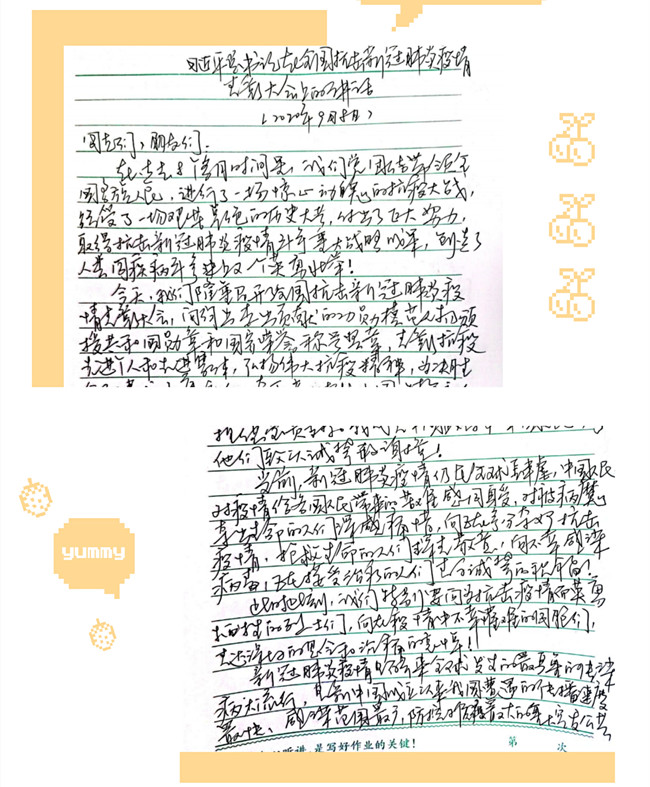 习近平总书记在全国抗击新冠肺炎疫情
表彰大会上的讲话
(2020年9月8日)
同志们,朋友们:
在过去8个多月时间里,我们党团结带领全
国各族人民,进行了一场惊心动魄的抗疫大战,
经受了一场艰苦卓绝的历史大考,付出了巨大努力,
取得抗击新冠肺炎疫情斗争重大战略成果,创造了
人类同疾病斗争史上又一个英勇壮举!
今天,我们隆重召开全国抗击新冠肺炎疫
情表彰大会,向作出杰出贡献的功勋模范人物颁
授共和国勋章和国家荣誉称号奖章,表彰抗疫
先进个人和先进集体,弘扬伟大抗疫精神,
他们致以诚挚的谢意!
当前,新冠肺炎疫情仍在全球肆虐,中国人民
对疫情给各国人民带来的苦难感同身受,对被病魔
夺去生命的人们深感痛惜,向正在争分夺秒抗击
疫情、抢救生命的人们深表敬意,向不幸感染
病毒、正在接受治疗的人们表示诚挚的祝福!
此时此刻,我们特别要向为抗击疫情而英勇
的烈士们,向在疫情中不幸罹难的同胞们,
表达深切的思念和沉痛的哀悼!
新冠肺炎疫情是百年来全球发生的最严重的传染
病大流行,是新中国成立以来我国遭遇的传播速度
最快、感染范围最广、防控难度最大的重大突发公共
听讲,是写好作业的关键!
第 次
yummy